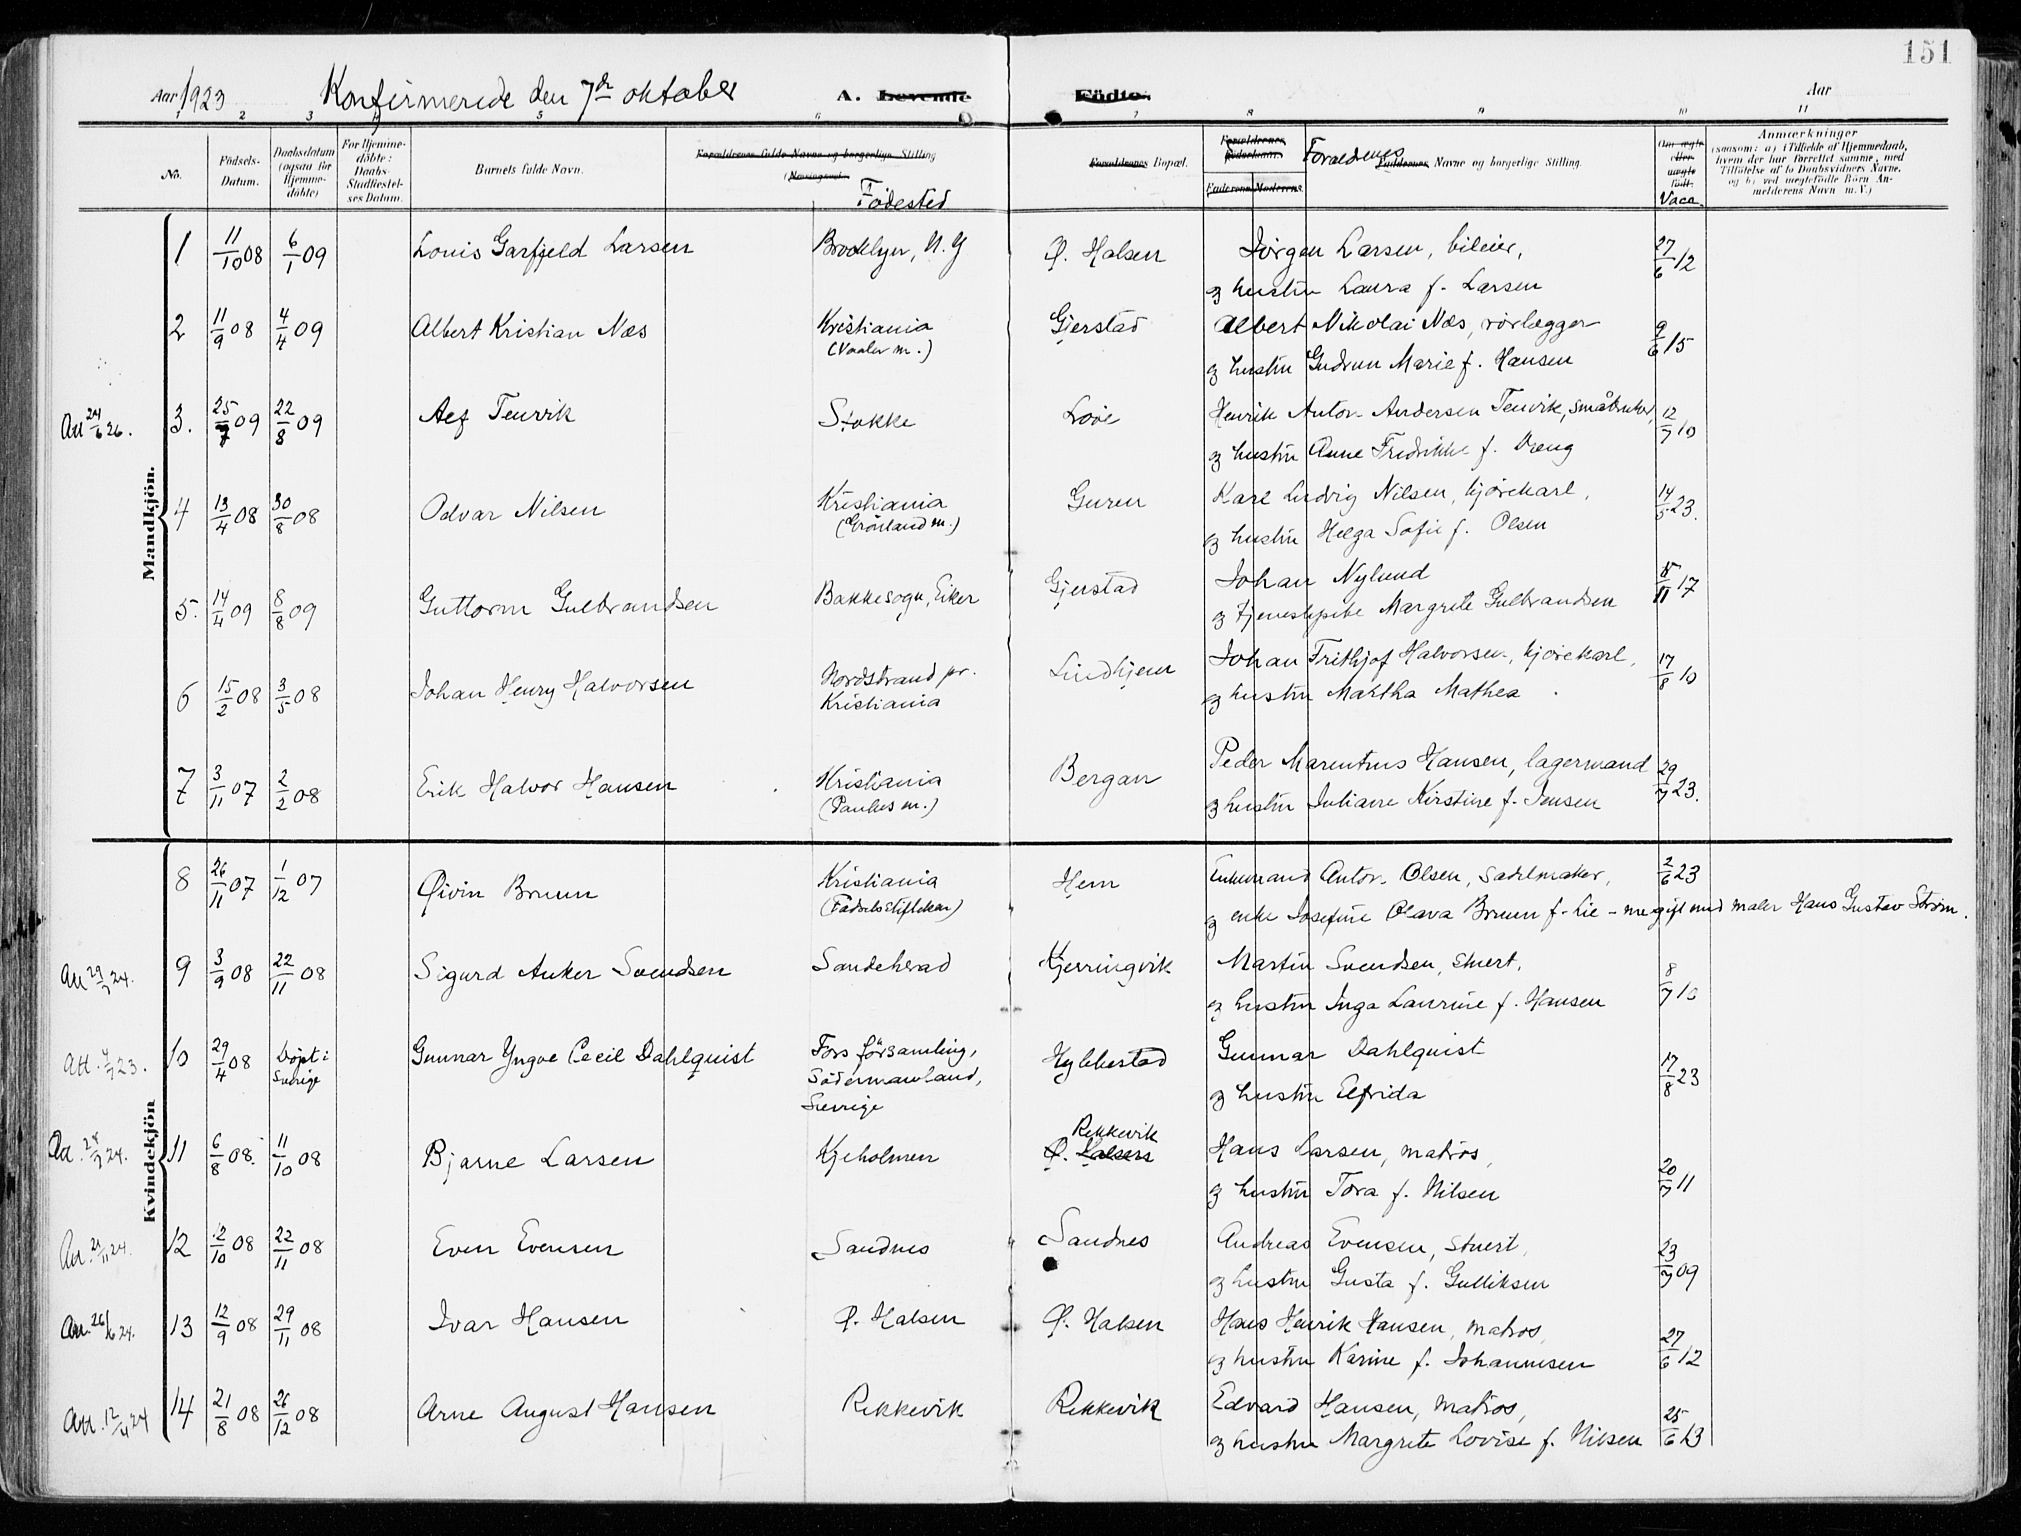 151
Aar 1923 Konfirmerede den 7de oktober A. Levende Födte. Aar
1 2 3 4 5 6 7 8 9 10 11
No.
Födsels-Datum.
Daabsdatum (ogsaa for Hjemmedöbte)
For Hjemmedöbte: Daabs Stadfæstelses Datum.
Barnets fulde Navn.
Forældrenes fulde Navne og borgerlige Stilling
Födested
Forældrenes Bopæl.
Forældrenes
Faderens Moderens
Forældrenes Navne og borgerlige Stilling.
Om ægte eller uægte født.
Vacc.
Anmærkninger
(saasom: a) i Tilfælde af Hjemmedaab,
hvem der har forrettet samme, med
Tilföielse af to Daabsvidners Navne,
og b) ved uægtefödte Börn Anmelderens Navn m. V.)
Mandkjön.
1 11/10 08 6/1 09 Louis Garfjeld Larsen Brooklyn, N.Y Ø. Halsen Jörgen Larsen, bileier, 27/6 12
og hustru Laura f. Larsen
2 11/9 08 4/4 09 Albert Kristian Næs Kristiania Gjerstad Albert Nikolai Næs, rörlægger 9/6 15
(Vaaler m.) og hustru Gudrun Marie f. Hansen
An 24/6 26. 3. 25/7 09 22/8 09 Alf Tenvik Stokke Löve Henrik Anton Andersen Tenvik, småbruker, 12/7 10
og hustru Anne Fredrikke f. Dreng
4 13/4 08 30/8 08 Odvar Nilsen Kristiania Guren Karl Ludvig Nilsen, kjörekarl, 14/5 23.
(Grönland m.) og hustru Helga Sofie f. Olsen
5. 14/4 09 8/8 09 Guttorm Gulbrandsen Bakkesogn, Eiker Gjerstad Johan Nylund /11 17
og tjenestepike Margrete Gulbrandsen
6 15/2 08 3/5 08 Johan Henry Halvorsen Nordstrand pr. Kristiania Lindhjem Johan Frithjof Halvorsen, kjörekarl, 17/8 10
og hustru Martha Mathea
7 3/11 07 2/2 08 Erik Halvor Hansen Kristiania Bergan Peder Marentius Hansen, lagermand 29/7 23.
(Paulus m.) og hustru Juliane Kirstine f. Jensen
Kvindekjön
8 26/11 07 1/12 07 Øivin Bruun Kristiania Hem Enkemand Anton Olsen, sadelmaker, 2/6 23
(Födselsstiftelsen) og enke Josefine Olava Bruun f. Lie - nu gift med maler Hans Gustav Ström.
An 29/7 24. 9 3/9 08 22/11 08 Sigurd Anker Svendsen Sandeherad Kjerringvik Martin Svendsen, stuert, 8/7 10
og hustru Inga Laurine f. Hansen
Att. 23. 10 29/4 08 Döpt i Sverige Gunnar Yngve Cecil Dahlquist Fors församling, Hybbestad Gunnar Dahlquist 17/8 23
Södermanland, og hustru Elfrida
Sverige
24. 11 6/8 08. 11/10 08 Bjarne Larsen Kjeholmen Rekkevik Ø. Halsen Hans Larsen, matros, 20/7 11
og hustru Tora f. Nilsen
An. 21/11 24. 12 12/10 08 22/11 08 Even Evensen Sandnes Sandnes Andreas Evensen, stuert, 23/7 09
og hustru Gusta f. Gulliksen
An. 26/6 24. 13 12/9 08 29/11 08 Ivar Hansen Ø. Halsen Ø. Halsen Hans Henrik Hansen, matros, 27/6 12
og hustru Karine f. Johannesen
Att. 12/4 24 14 21/8 08 26/12 08 Arne August Hansen Rekkevik Rekkevik Edvard Hansen, matros, 25/6 13
og hustru Margrete Lovise f. Nilsen